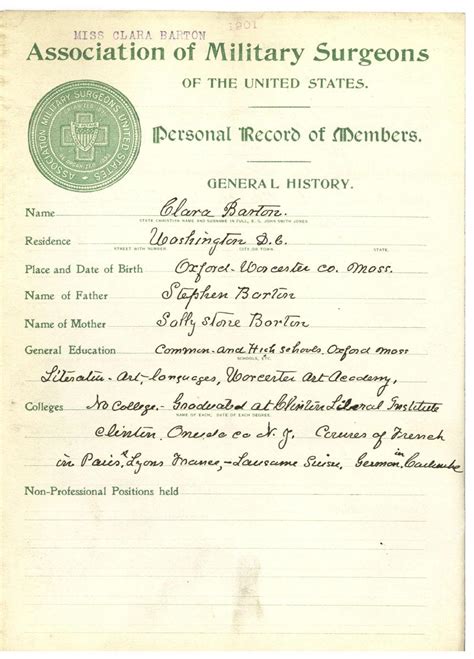 1901
MISS CLARA BARTON
Association of Military Surgeons
OF THE UNITED STATES.
ASSOCIATION MILITARY SURGEONS UNITED STATES
Personal Record of Members.
GENERAL HISTORY.
Name Clara Barton.
STATE CHRISTIAN NAME AND SURNAME IN FULL, E. G. JOHN SMITH JONES
Residence Washington D.C.
STREET WITH NUMBER CITY OR TOWN STATE.
Place and Date of Birth Oxford - Worcester co. Mass.
Name of Father Stephen Barton
Name of Mother Sally Stone Barton
General Education Common - and High schools, Oxford Mass
SCHOOLS, ETC.
Literatu - Art - languages, Worcester Art Academy,
Colleges No College - Graduated at Clinton Liberal Institute
NAME OF EACH, DATE OF EACH DEGREE.
Clinton, Oneida co N.Y. Courses of French
in Paris, & Lyons France, - Lausanne Suisse, German in
Non-Professional Positions held